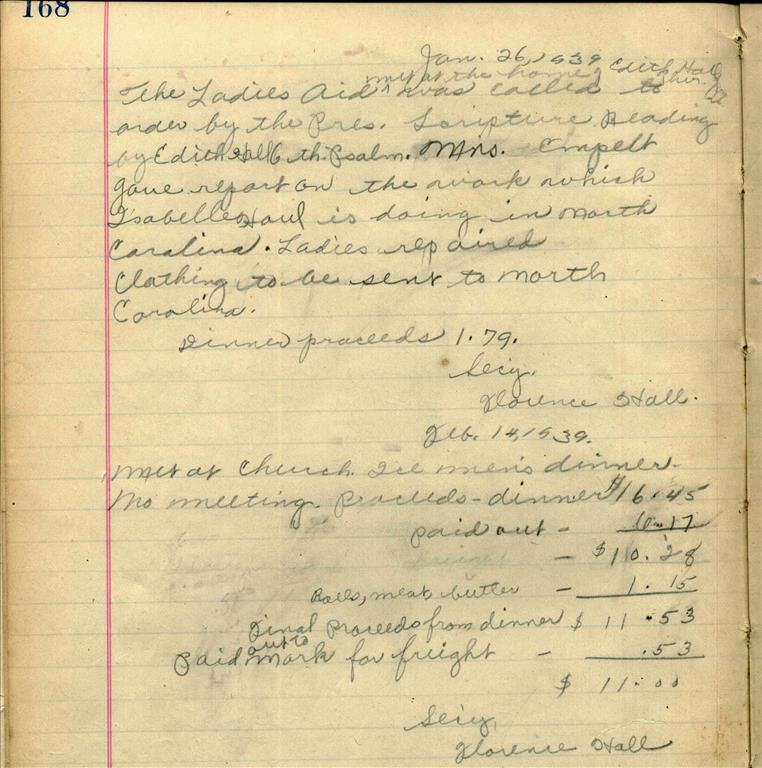 168
Jan. 26, 1939
met at the home of Edith Hall
The Ladies Aid was called to
order by the Pres. Scripture Reading
by Edith Hall 6 th. Psalm. Mrs. Empelt
gave report on the work which
Isabelle is doing in North
Carolina. Ladies repaired
Clothing to be sent to North
Carolina.
Dinner proceeds 1.79.
Secy.
Florence Hall.
Feb. 14, 1939.
Met at Church. Ice men's dinner.
No meeting. Proceeds - dinner $16.45
paid out - 6.17
- $10.28
Rolls, meat, butter - 1.15
Final proceeds from dinner $ 11.53
out to
Paid Mark for freight - .53
$ 11.00
Secy,
Florence Hall